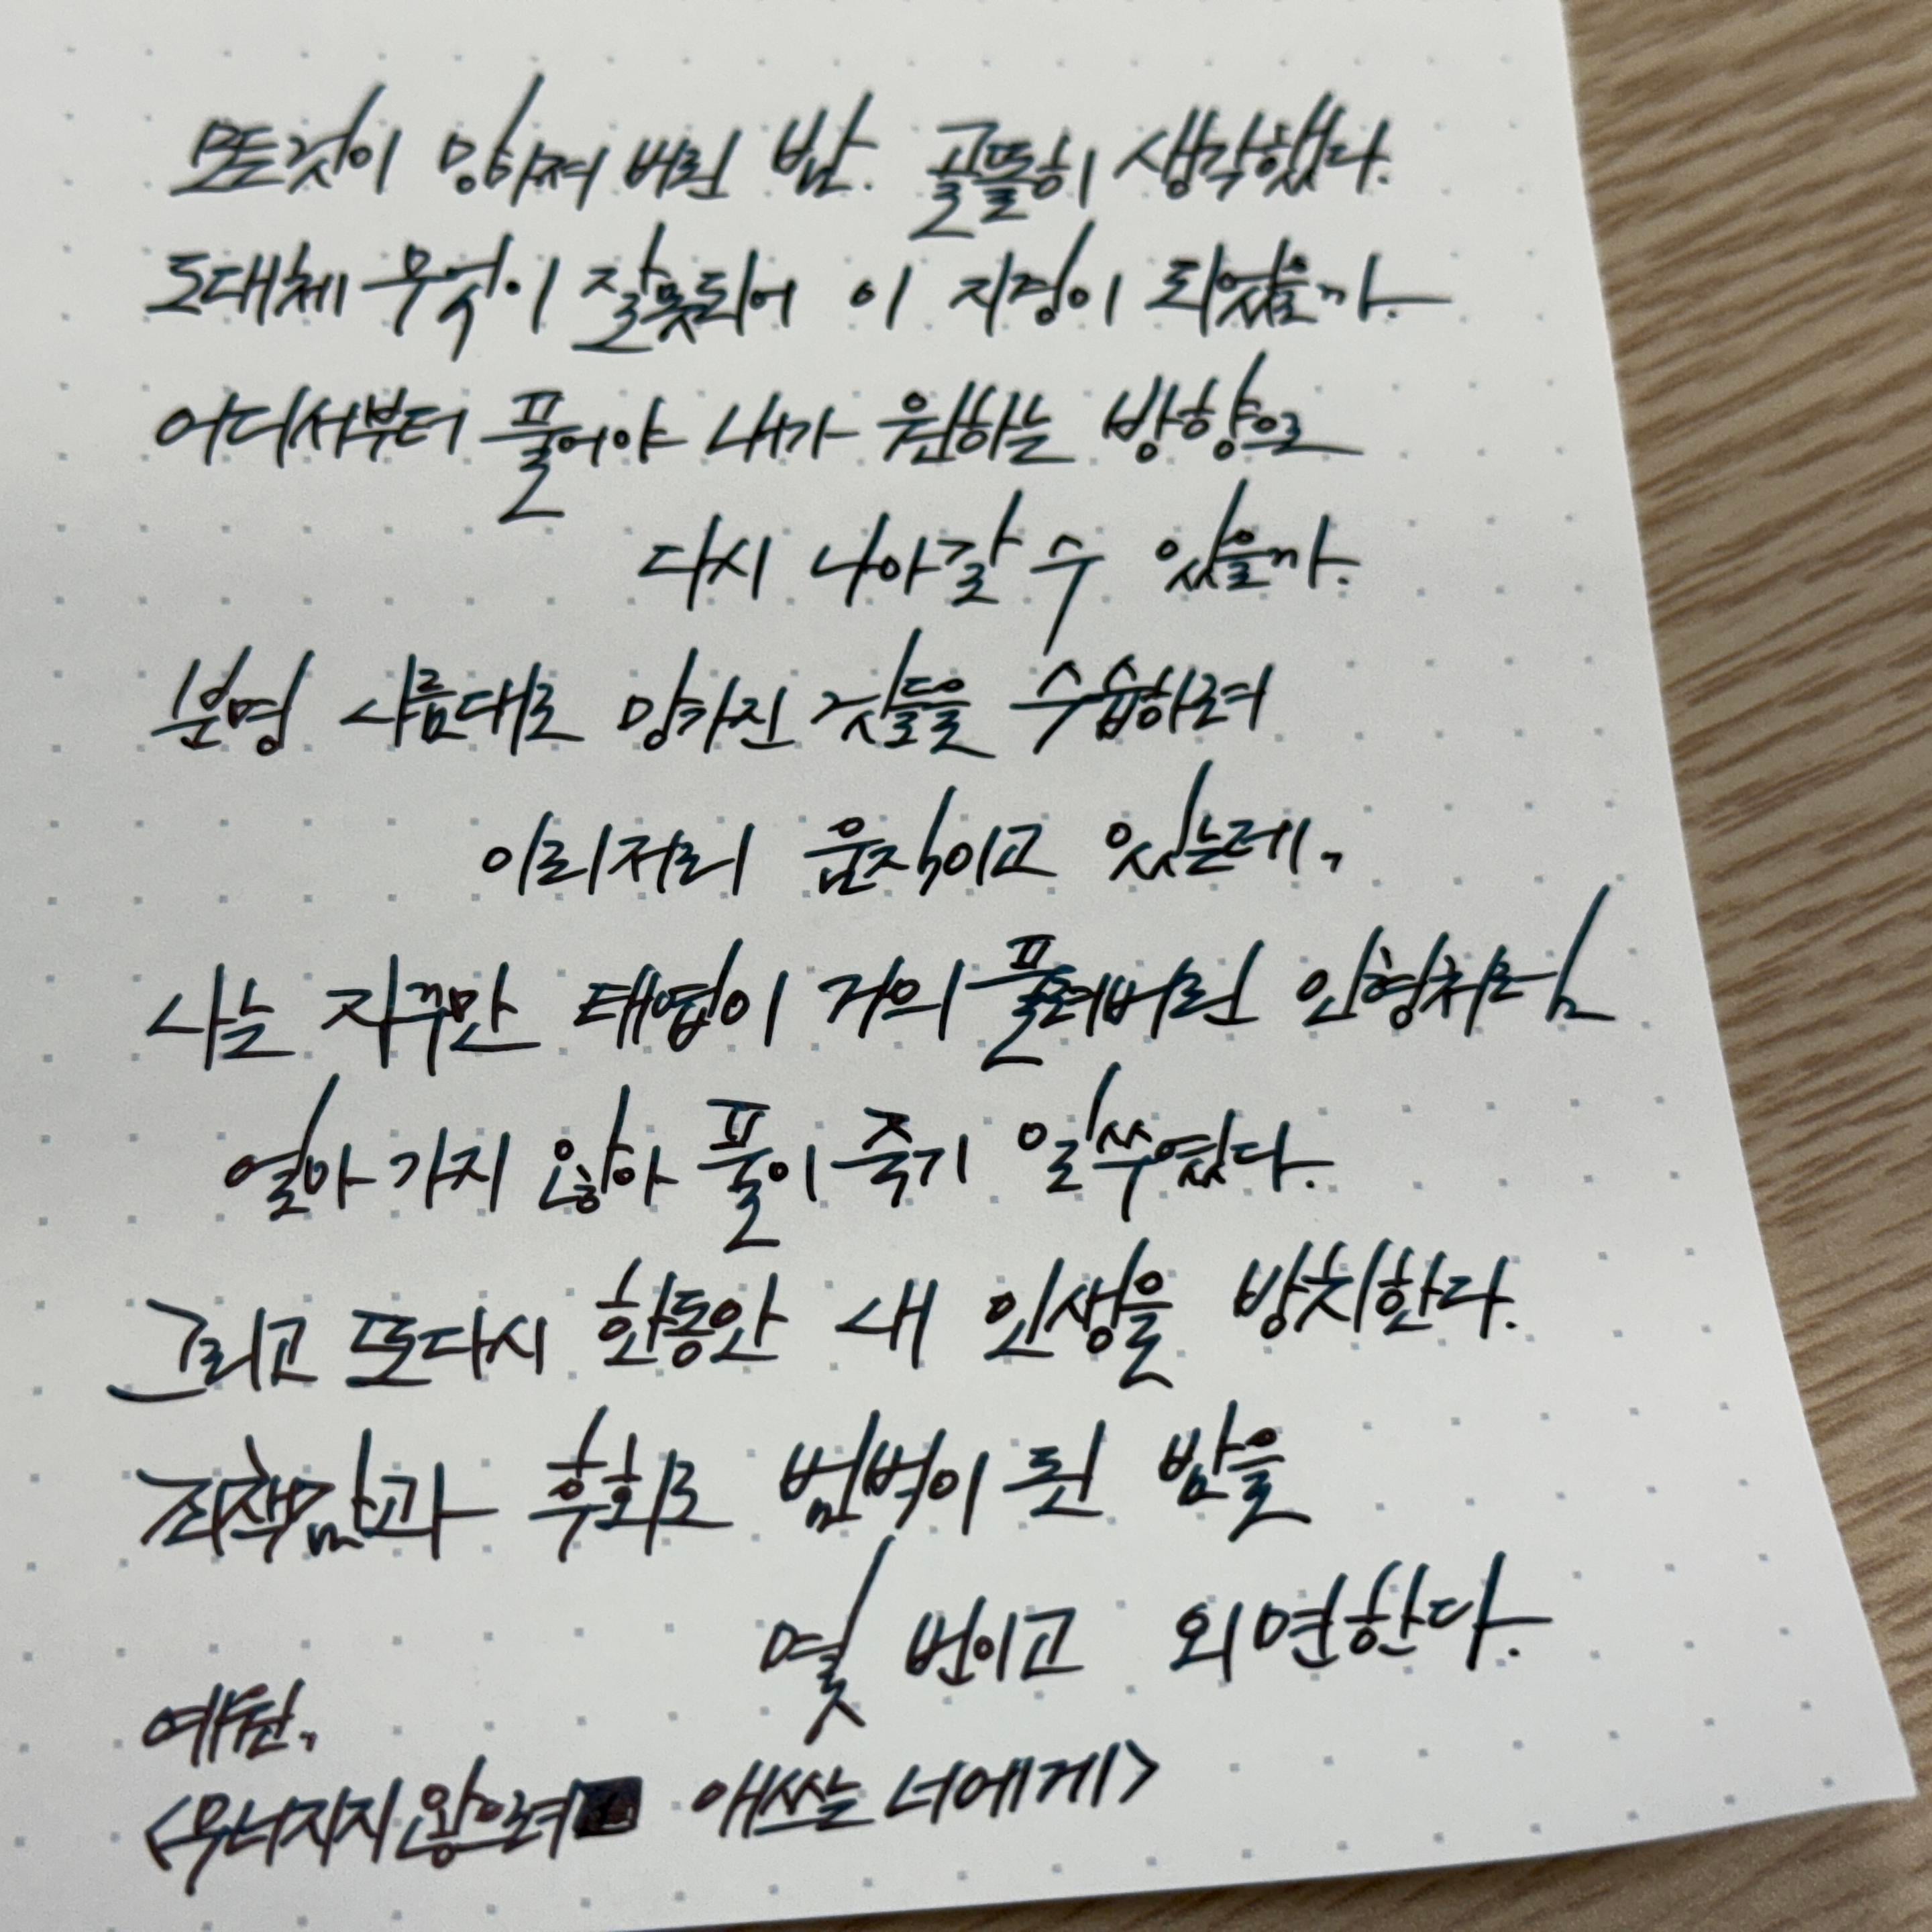 모든 것이 망가져 버린 밤. 골똘히 생각했다.
도대체 무엇이 잘못되어 이 지경이 되었을까.
어디서부터 풀어야 내가 원하는 방향으로
다시 나아갈 수 있을까.
분명 나름대로 망가진 것들을 수습하려
이리저리 움직이고 있는데,
나는 자꾸만 태엽이 거의 풀려버린 인형처럼
얼마 가지 않아 풀이 죽기 일쑤였다.
그리고 또다시 한동안 내 인생을 방치한다.
죄책감과 후회로 범벅이 된 밤을
몇 번이고 외면한다.
예원,
<무너지지 않으려 애쓰는 너에게>